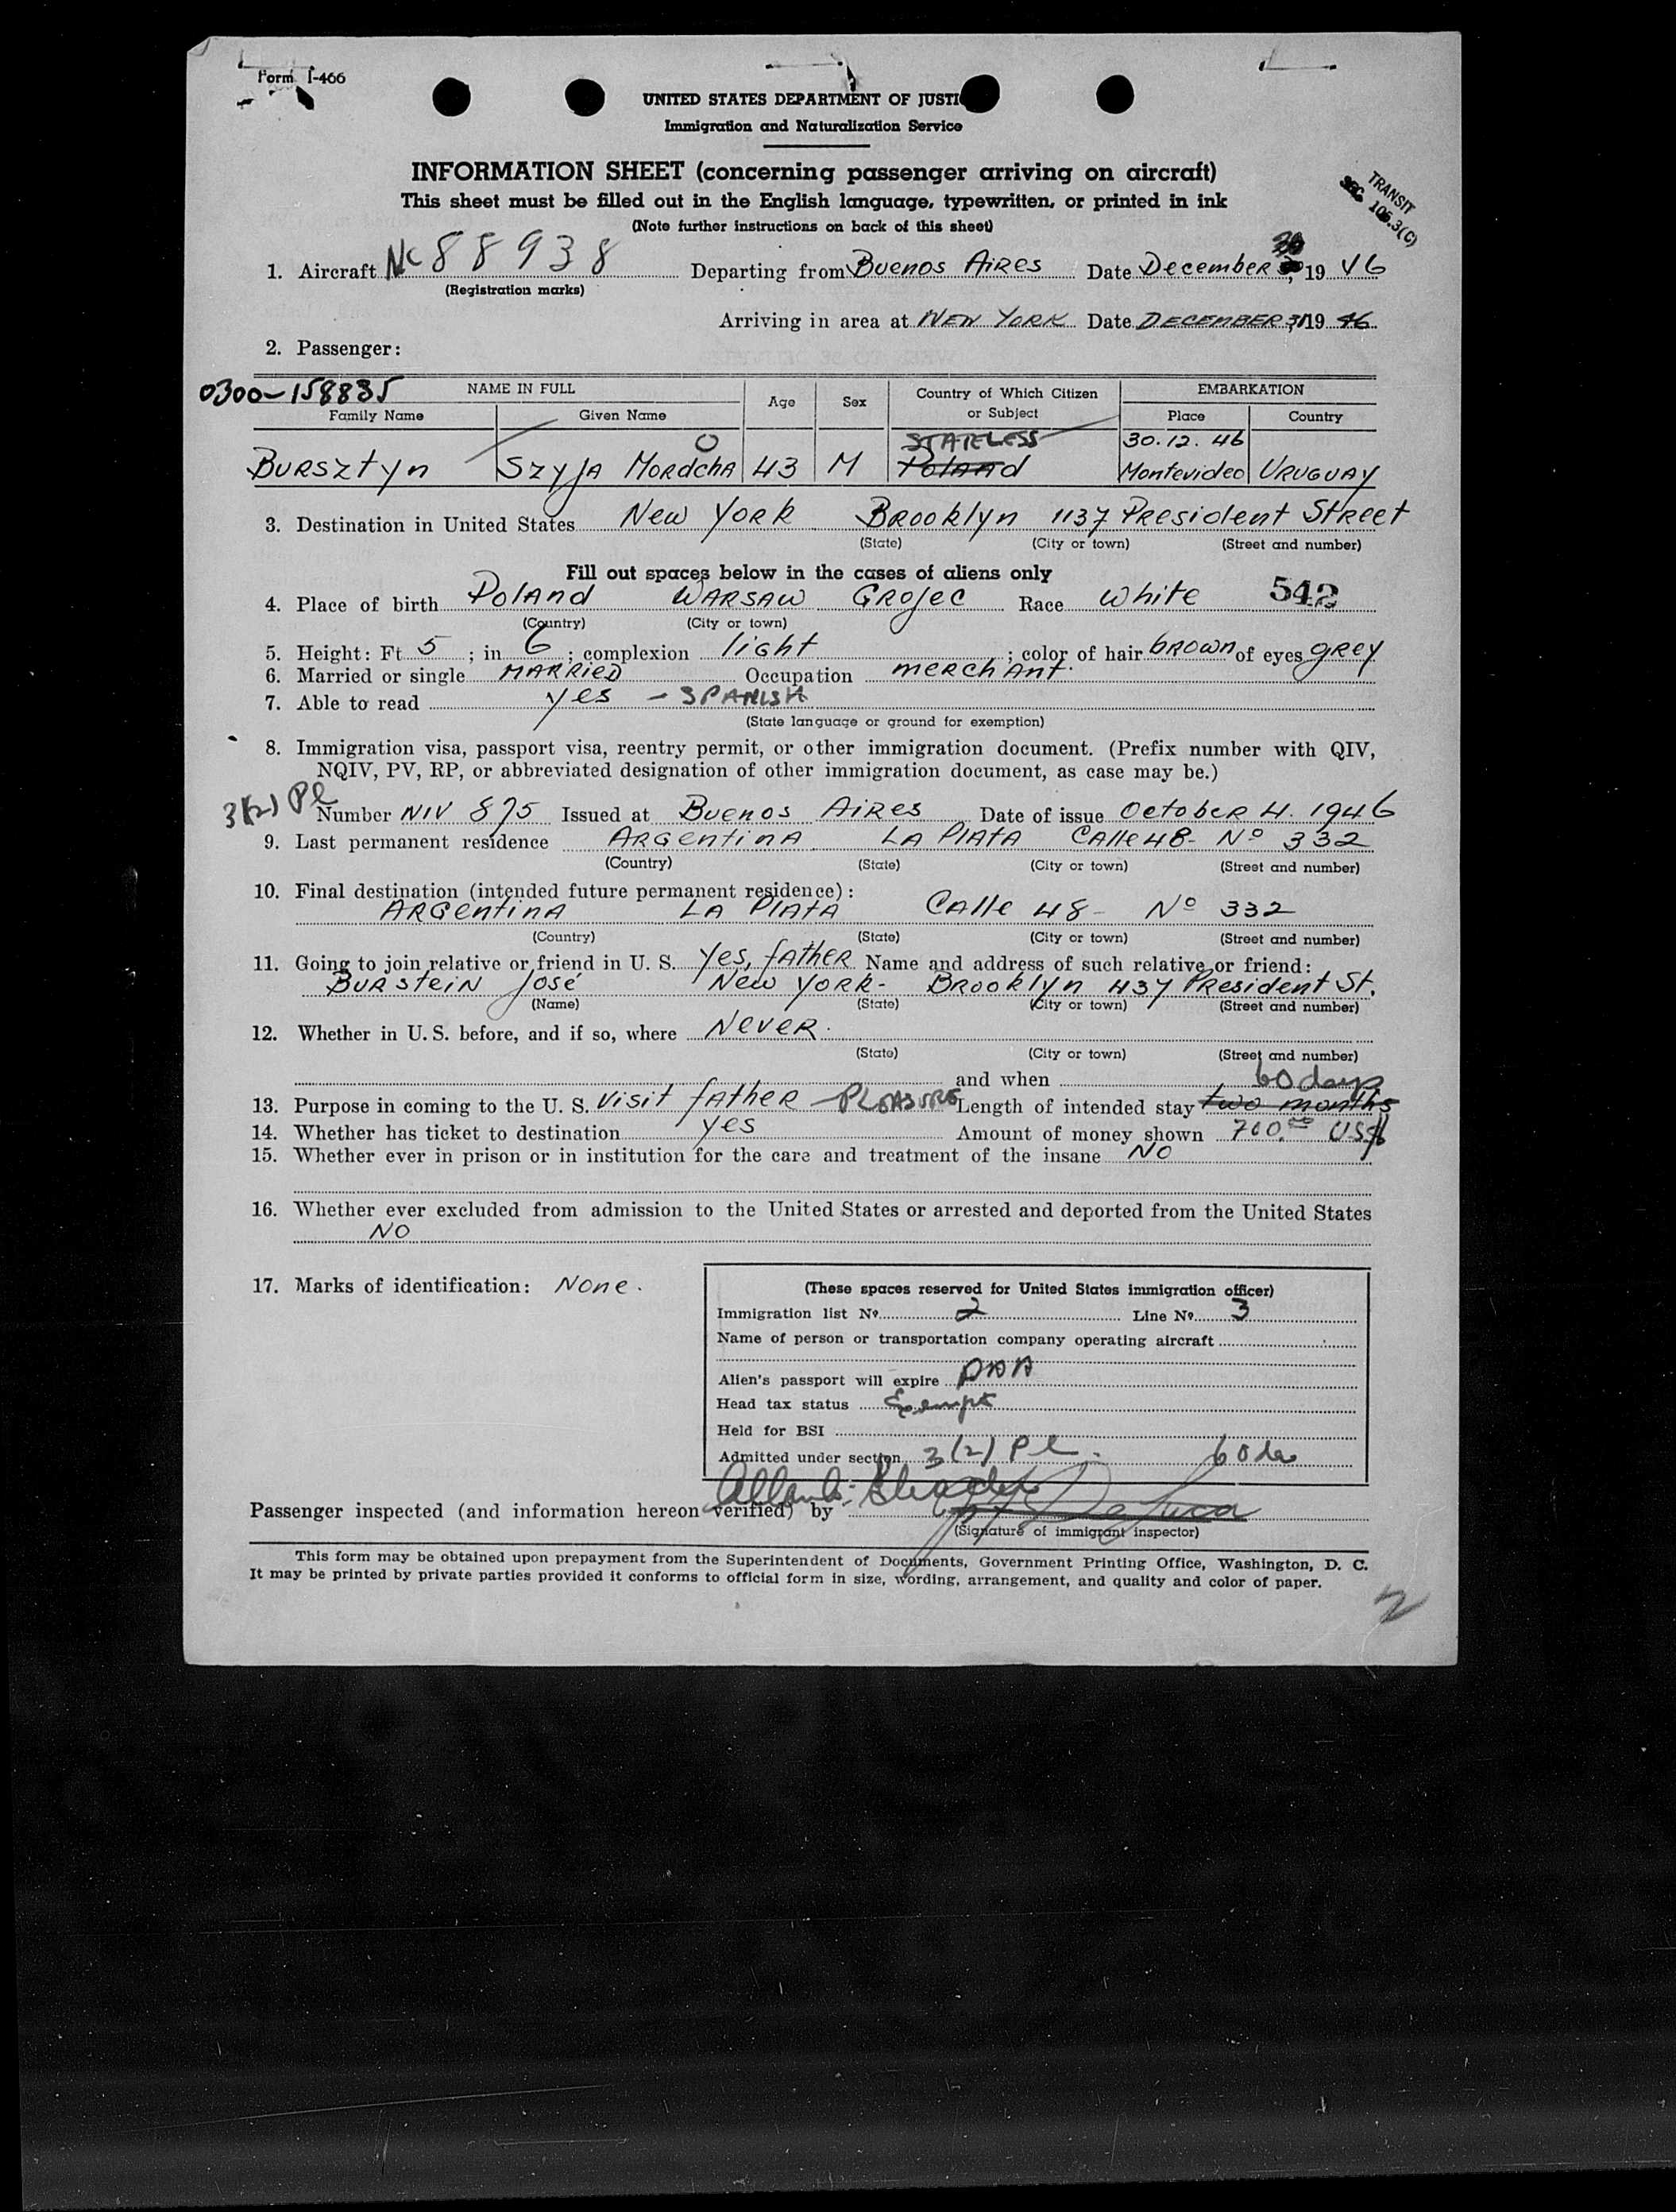 Form I-466
UNITED STATES DEPARTMENT OF JUSTI
Immigration and Naturalization Service
INFORMATION SHEET (concerning passenger arriving on aircraft)
This sheet must be filled out in the English language, typewritten, or printed in ink
(Note further instructions on back of this sheet)
TRANSIT
SEC. 105.3(C)
1. Aircraft NC 88938 Departing from Buenos Aires Date December 30, 19 46
(Registration marks)
Arriving in area at NEW YORK Date DECEMBER 31 19 46
2. Passenger:
0300-158835 NAME IN FULL Age Sex Country of Which Citizen or Subject EMBARKATION
Family Name Given Name Place Country
STATELESS 30.12.46
Bursztyn Szyja Mordcha O 43 M Poland Montevideo URUGUAY
3. Destination in United States New York Brooklyn 1137 President Street
(State) (City or town) (Street and number)
Fill out spaces below in the cases of aliens only
4. Place of birth Poland WARSAW Grojec Race white 542
(Country) (City or town)
5. Height: Ft 5 ; in 6 ; complexion light ; color of hair brown of eyes grey
6. Married or single MARRIED Occupation merchant.
7. Able to read yes - SPANISH
(State language or ground for exemption)
8. Immigration visa, passport visa, reentry permit, or other immigration document. (Prefix number with QIV,
NQIV, PV, RP, or abbreviated designation of other immigration document, as case may be.)
3(2) Pl
Number NIV 875 Issued at Buenos Aires Date of issue October 4. 1946
9. Last permanent residence Argentina LA PLATA Calle 48- Nº 332
(Country) (State) (City or town) (Street and number)
10. Final destination (intended future permanent residence):
ARGentinA LA PlAtA Calle 48- Nº 332
(Country) (State) (City or town) (Street and number)
11. Going to join relative or friend in U. S. Yes, father Name and address of such relative or friend:
Burstein José New York- Brooklyn 1137 President St.
(Name) (State) (City or town) (Street and number)
12. Whether in U. S. before, and if so, where Never.
(State) (City or town) (Street and number)
and when 60 days
13. Purpose in coming to the U. S. visit father - PLEASURE Length of intended stay two months
14. Whether has ticket to destination yes Amount of money shown 700.00 US$
15. Whether ever in prison or in institution for the care and treatment of the insane No
16. Whether ever excluded from admission to the United States or arrested and deported from the United States
NO
17. Marks of identification: None.
(These spaces reserved for United States immigration officer)
Immigration list Nº 2 Line Nº 3
Name of person or transportation company operating aircraft
PAA
Alien's passport will expire
Head tax status Exempt
Held for BSI
Admitted under section 3(2) Pl. 60 da
Passenger inspected (and information hereon verified) by
(Signature of immigrant inspector)
This form may be obtained upon prepayment from the Superintendent of Documents, Government Printing Office, Washington, D. C.
It may be printed by private parties provided it conforms to official form in size, wording, arrangement, and quality and color of paper.
2